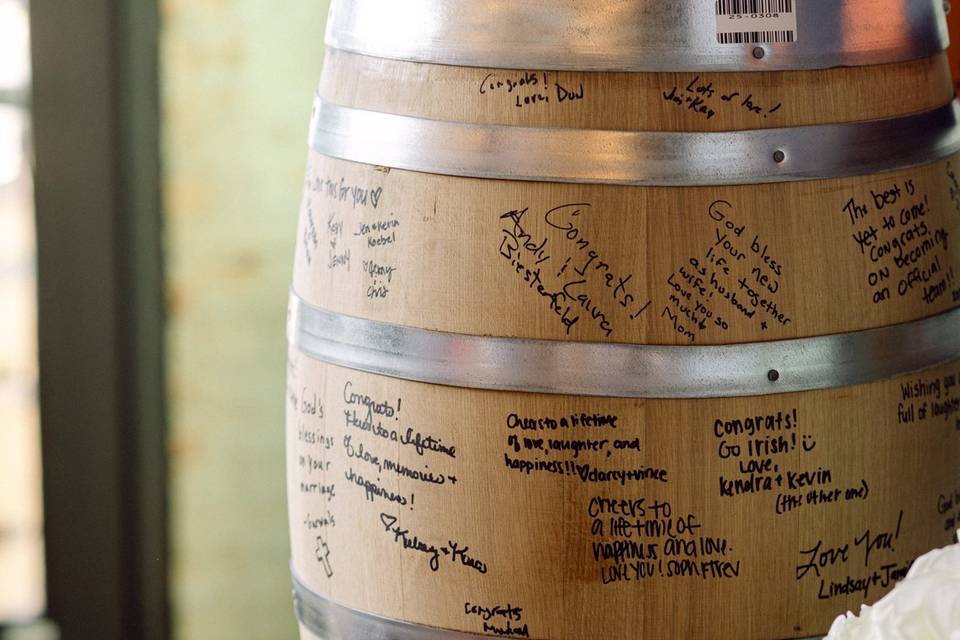 25-0308
Congrats!
Love, Dad
Lots of love!
Jim+Kay
Love this for you ♡
Jen+Kevin
Koebel
Jenny
Chris
Congrats!
Andy & Laura
Biesterfeld
God bless
your new
life together
as husband +
wife!
Love you so
much!
Mom
The best is
yet to come!
Congrats
on becoming
an official
team!!
God's
blessings
on your
marriage
Congrats!
Here's to a lifetime
of love, memories +
happiness!
♡
Cheers to a lifetime
of love, laughter, and
happiness!! ♡ darcy+vince
cheers to
a lifetime of
happiness and love.
Love you! Soph+Trev
congrats!
Go Irish! ☺
Love,
Kendra + Kevin
(the other one)
Wishing you
full of laughter
God
Love You!
Lindsay + Jam
Congrats
Michael